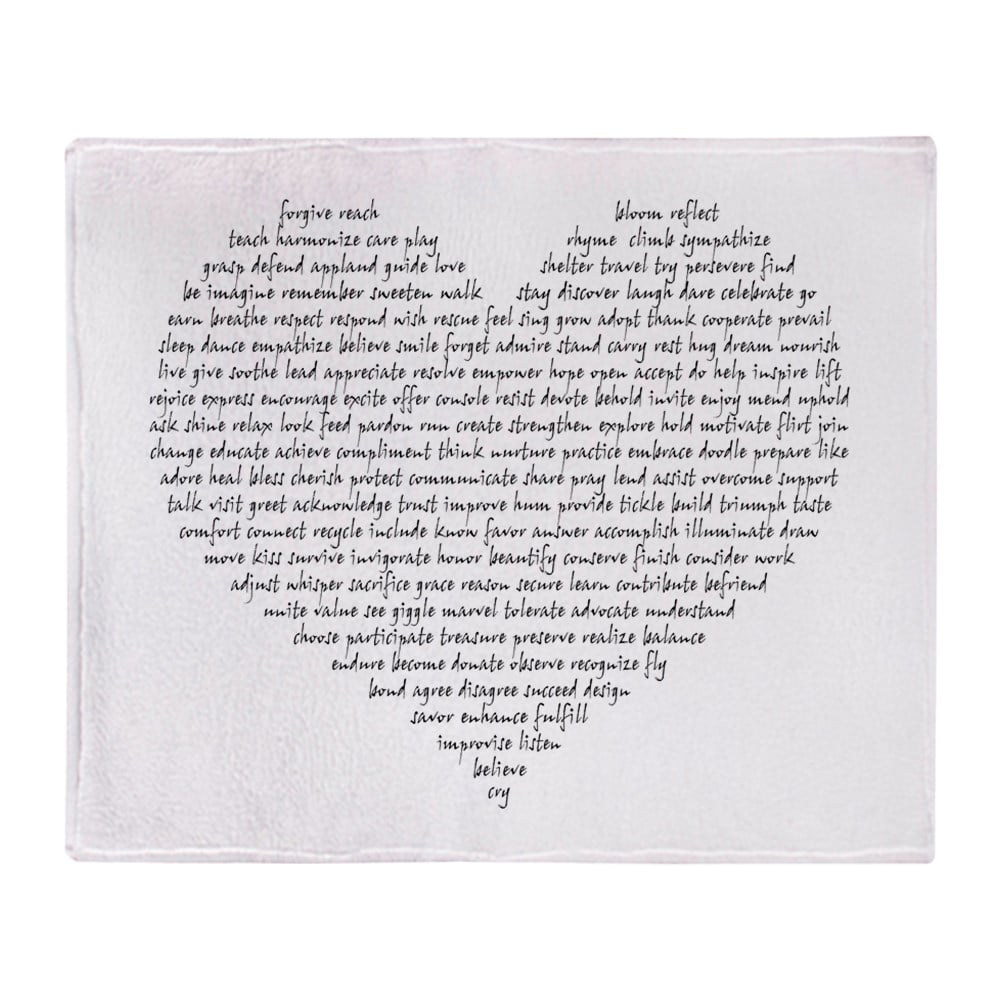 forgive reach bloom reflect
teach harmonize care play rhyme climb sympathize
grasp defend applaud guide love shelter travel try persevere find
be imagine remember sweeten walk stay discover laugh dare celebrate go
earn breathe respect respond wish rescue feel sing grow adopt thank cooperate prevail
sleep dance empathize believe smile forget admire stand carry rest hug dream nourish
live give soothe lead appreciate resolve empower hope open accept do help inspire lift
rejoice express encourage excite offer console resist devote behold invite enjoy mend uphold
ask shine relax look feed pardon run create strengthen explore hold motivate flirt join
change educate achieve compliment think nurture practice embrace doodle prepare like
adore heal bless cherish protect communicate share pray lend assist overcome support
talk visit greet acknowledge trust improve hum provide tickle build triumph taste
comfort connect recycle include know favor answer accomplish illuminate draw
move kiss survive invigorate honor beautify conserve finish consider work
adjust whisper sacrifice grace reason secure learn contribute befriend
unite value see giggle marvel tolerate advocate understand
choose participate treasure preserve realize balance
endure become donate observe recognize fly
bond agree disagree succeed design
savor enhance fulfill
improvise listen
believe
cry